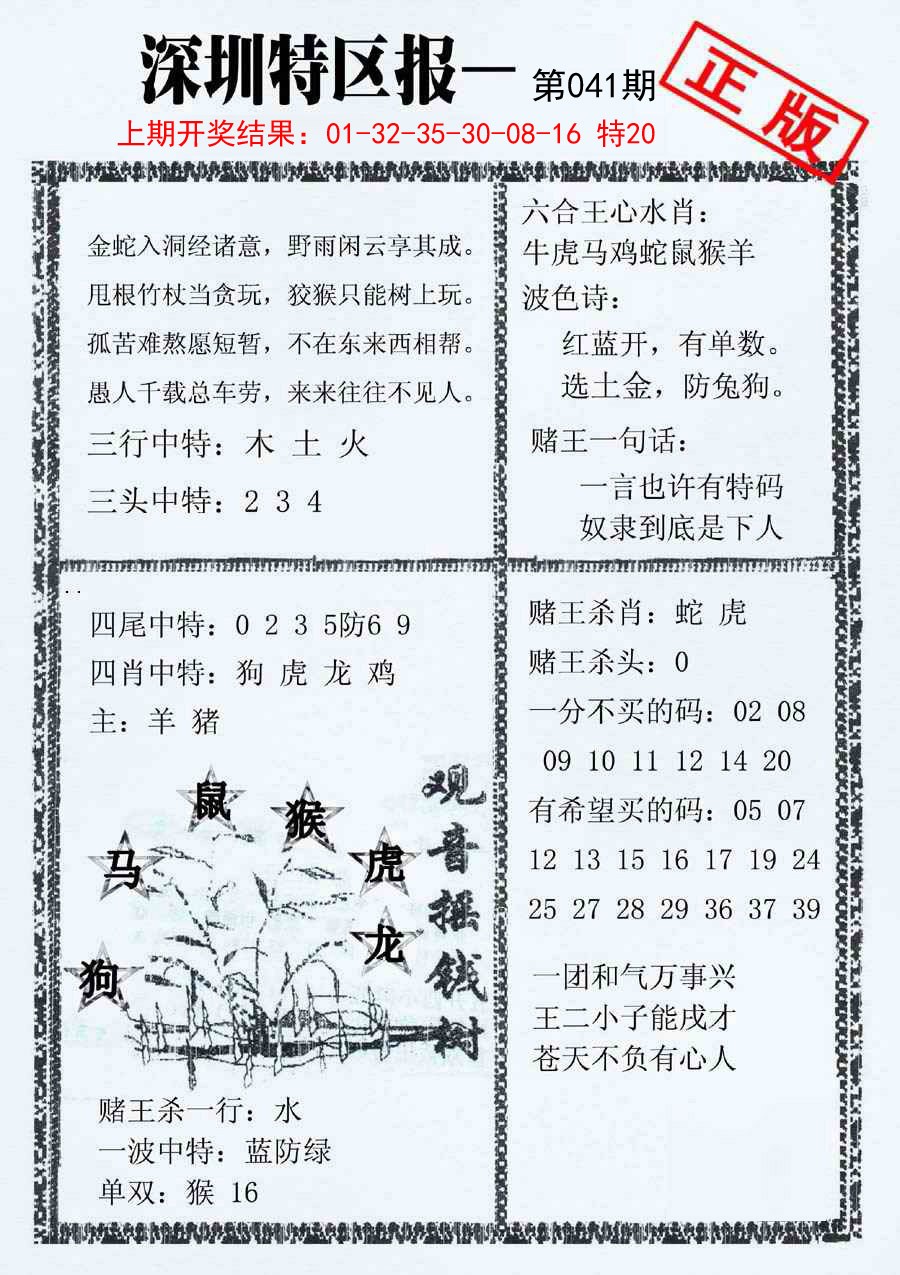 深圳特区报一 第041期
正版
上期开奖结果：01-32-35-30-08-16 特20
金蛇入洞经诸意，野雨闲云享其成。
甩根竹杖当贪玩，狡猴只能树上玩。
孤苦难熬愿短暂，不在东来西相帮。
愚人千载总车劳，来来往往不见人。
三行中特：木 土 火
三头中特：2 3 4
六合王心水肖：
牛虎马鸡蛇鼠猴羊
波色诗：
红蓝开，有单数。
选土金，防兔狗。
赌王一句话：
一言也许有特码
奴隶到底是下人
四尾中特：0 2 3 5防6 9
四肖中特：狗 虎 龙 鸡
主：羊 猪
鼠
猴
马
虎
龙
狗
观音摇钱树
赌王杀一行：水
一波中特：蓝防绿
单双：猴 16
赌王杀肖：蛇 虎
赌王杀头：0
一分不买的码：02 08
09 10 11 12 14 20
有希望买的码：05 07
12 13 15 16 17 19 24
25 27 28 29 36 37 39
一团和气万事兴
王二小子能戌才
苍天不负有心人